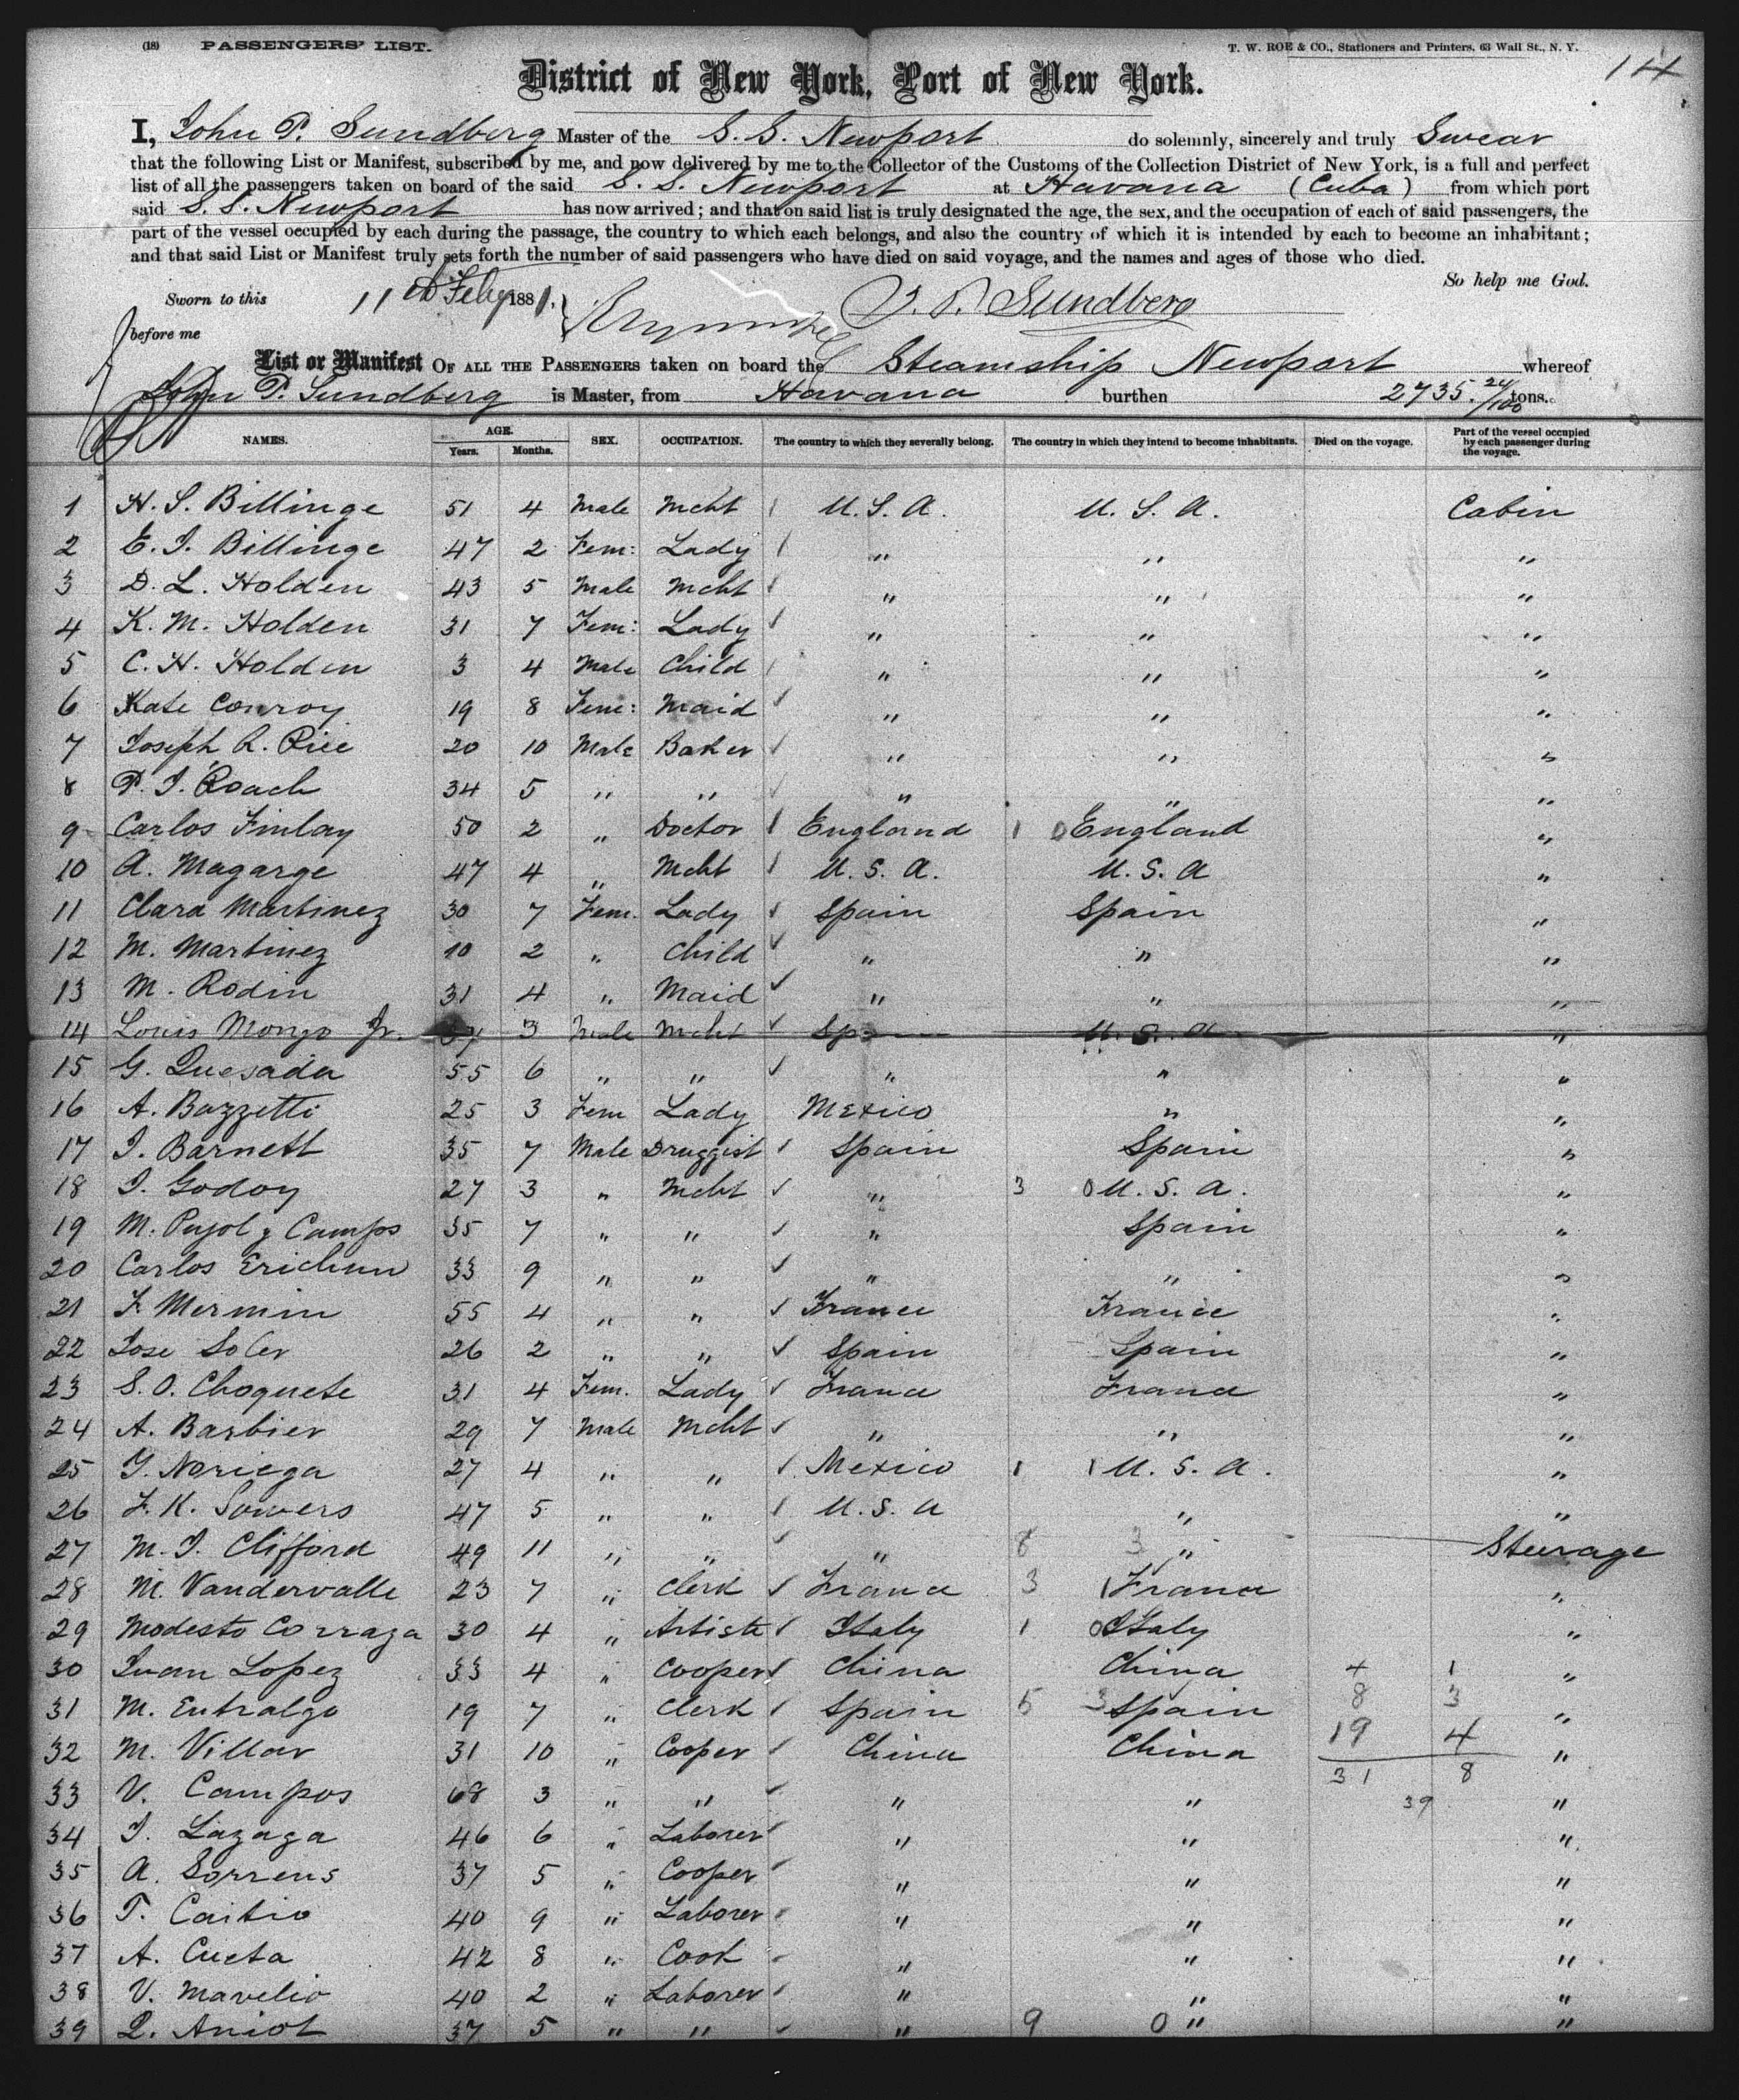 (18) PASSENGERS' LIST.
T. W. ROE & CO., Stationers and Printers, 63 Wall St., N. Y.
14
District of New York, Port of New York.
I, John P. Sundberg Master of the S. S. Newport do solemnly, sincerely and truly Swear
that the following List or Manifest, subscribed by me, and now delivered by me to the Collector of the Customs of the Collection District of New York, is a full and perfect
list of all the passengers taken on board of the said S. S. Newport at Havana (Cuba) from which port
said S. S. Newport has now arrived; and that on said list is truly designated the age, the sex, and the occupation of each of said passengers, the
part of the vessel occupied by each during the passage, the country to which each belongs, and also the country of which it is intended by each to become an inhabitant;
and that said List or Manifest truly sets forth the number of said passengers who have died on said voyage, and the names and ages of those who died.
So help me God.
Sworn to this 11th Feby 1881, J. P. Sundberg
before me
List or Manifest OF ALL THE PASSENGERS taken on board the Steamship Newport whereof
John P. Sundberg is Master, from Havana burthen 2735. 24/100 tons.
NAMES. AGE. Years. Months. SEX. OCCUPATION. The country to which they severally belong. The country in which they intend to become inhabitants. Died on the voyage. Part of the vessel occupied by each passenger during the voyage.
1 H. S. Billinge 51 4 Male Mcht U. S. A. U. S. A. Cabin
2 E. J. Billinge 47 2 Fem: Lady " " "
3 D. L. Holden 43 5 Male Mcht " " "
4 K. M. Holden 31 7 Fem: Lady " " "
5 C. H. Holden 3 4 Male Child " " "
6 Kate Conroy 19 8 Fem: Maid " " "
7 Joseph R. Rice 20 10 Male Baker " " "
8 P. J. Roach 34 5 " " " " "
9 Carlos Finlay 50 2 " Doctor England 1 0 England "
10 A. Magarge 47 4 " Mcht U. S. A. U. S. A "
11 Clara Martinez 30 7 Fem. Lady Spain Spain "
12 M. Martinez 10 2 " Child " " "
13 M. Rodin 31 4 " Maid " " "
14 Louis Monzo Jr. 3 Male Mcht U. S. A "
15 G. Quesada 55 6 " " " " "
16 A. Bazzetti 25 3 Fem Lady Mexico " "
17 J. Barnett 35 7 Male Druggist Spain Spain "
18 J. Godoy 27 3 " Mcht " 3 0 U. S. A. "
19 M. Pujol y Camps 35 7 " " " Spain "
20 Carlos 33 9 " " " " "
21 F. Mermin 55 4 " " France France "
22 Jose Soler 26 2 " " Spain Spain "
23 S. O. Choquete 31 4 Fem. Lady France France "
24 A. Barbier 29 7 Male Mcht " " "
25 Y. Noriega 27 4 " " Mexico 1 1 U. S. A. "
26 F. K. Sowers 47 5 " " U. S. A " "
27 M. J. Clifford 49 11 " " " 8 3 " Steerage
28 M. Vandervalle 23 7 " Clerk France 3 1 France "
29 Modesto Corraza 30 4 " Artiste Italy 1 0 Italy "
30 Juan Lopez 33 4 " Cooper China China 4 1 "
31 M. Entralgo 19 7 " Clerk Spain 5 3 Spain 8 3 "
32 M. Villar 31 10 " Cooper China China 19 4 "
31 8
33 V. Campos 68 3 " " " " 39 "
34 J. Lazaga 46 6 " Laborer " " "
35 A. Sorrens 37 5 " Cooper " " "
36 T. Caitio 40 9 " Laborer " " "
37 A. Cueta 42 8 " Cook " " "
38 V. Mavelio 40 2 " Laborer " " "
39 Q. Aniot 37 5 " " " 9 0 " "